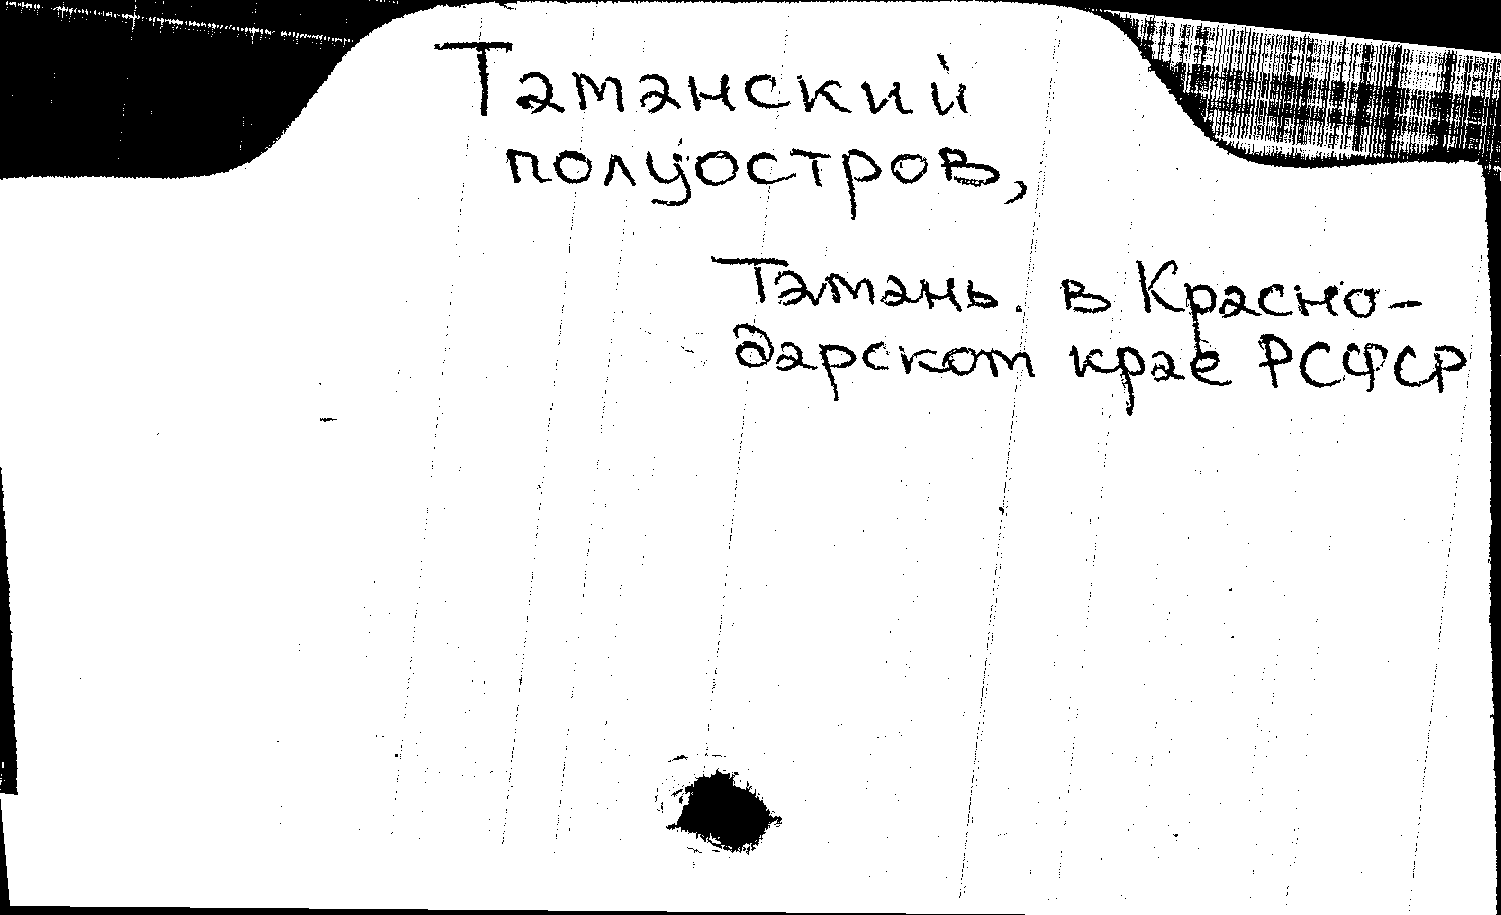 Таманский
полуостров,
Тамань. в Красно-
дарском крае РСФСР